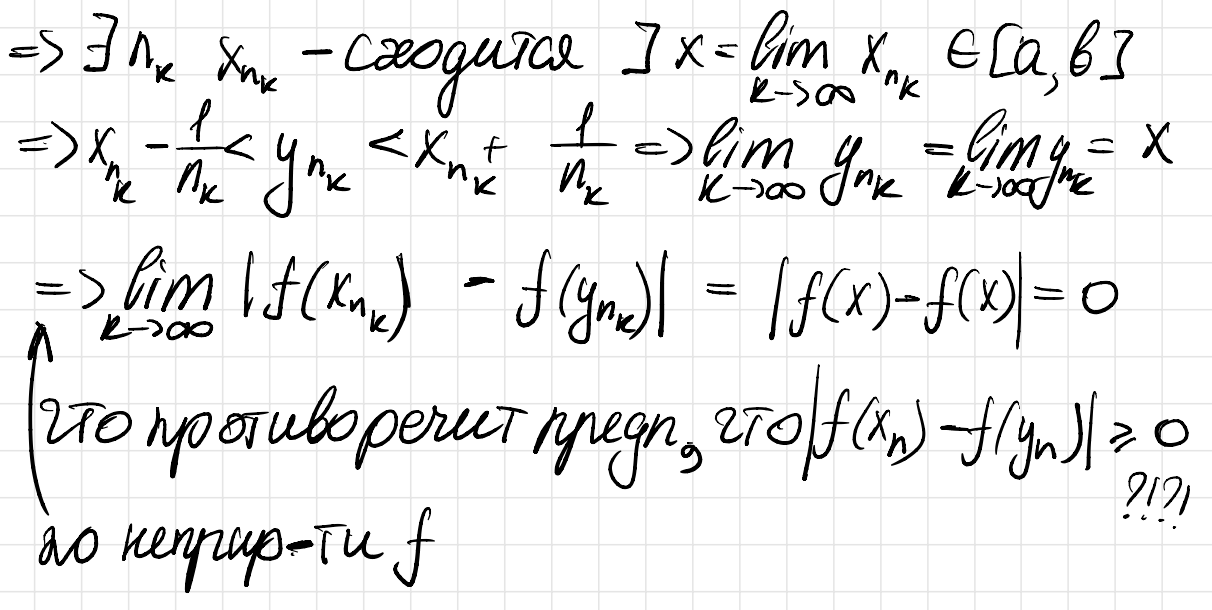 => ∃ n_k x_{n_k} - сходится ] x = lim_{k->∞} x_{n_k} ∈ [a, b]
=> x_{n_k} - 1/n_k < y_{n_k} < x_{n_k} + 1/n_k => lim_{k->∞} y_{n_k} = lim_{k->∞} y_{n_k} = x
=> lim_{k->∞} |f(x_{n_k}) - f(y_{n_k})| = |f(x) - f(x)| = 0
что противоречит предп, что |f(x_n) - f(y_n)| ⩾ 0
?!?!
по непрер-ти f